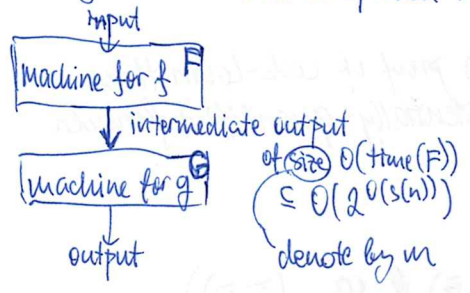 input
machine for f F
intermediate output
of size O(time(F))
⊆ O(2^O(s(n)))
machine for g G
denote by m
output